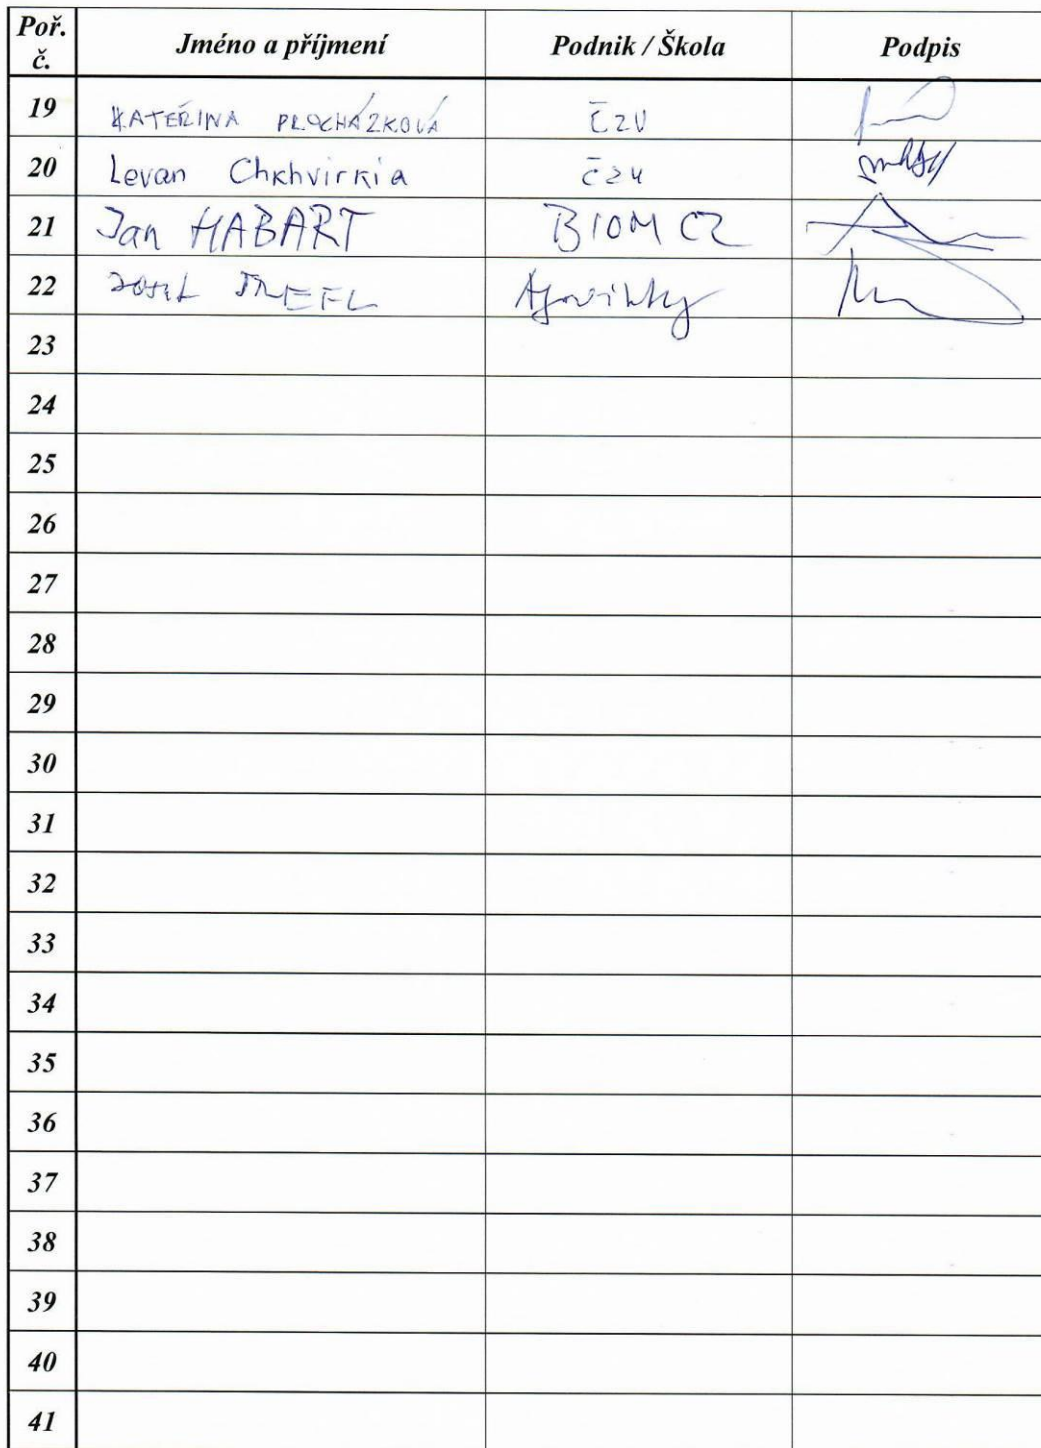 Poř. č. Jméno a příjmení Podnik / Škola Podpis
19 KATEŘINA PROCHÁZKOVÁ ČZU
20 Levan Chkhvirkia ČZU
21 Jan HABART BIOM CZ
22
23
24
25
26
27
28
29
30
31
32
33
34
35
36
37
38
39
40
41